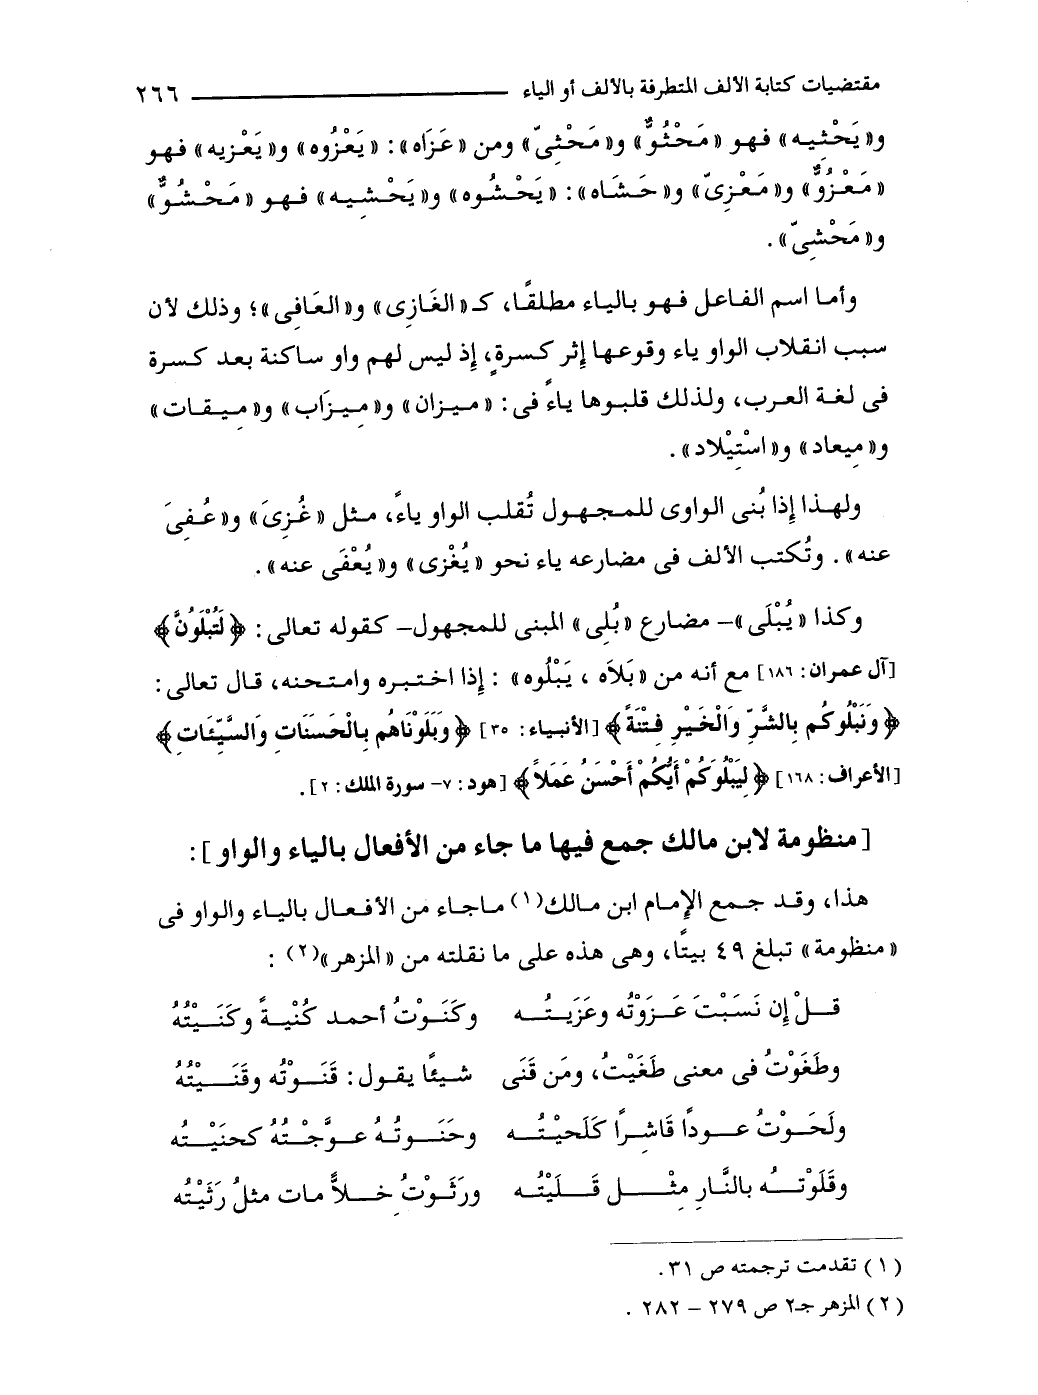 مقتضيات كتابة الألف المتطرفة بالألف أو الياء ٢٦٦
و« يَحْثِيه » فهو « مَحْثُوٌّ » و« مَحْثِىّ » ومن « عَزَاه » : « يَعْزُوه » و« يَعْزيه » فهو
« مَعْزُوٌّ » و« مَعْزِىّ » و« حَشَاه » : « يَحْشُوه » و« يَحْشيه » فهو « مَحْشُوٌّ »
و« مَحْشِىّ » .
وأما اسم الفاعل فهو بالياء مطلقًا، كـ« الغَازِى » و« العَافِى » ؛ وذلك لأن
سبب انقلاب الواو ياء وقوعها إثر كسرةٍ، إذ ليس لهم واو ساكنة بعد كسرة
فى لغة العرب، ولذلك قلبوها ياءً فى : « ميزان » و« مِيزَاب » و« مِيقات »
و« مِيعاد » و« اسْتِيْلاد » .
ولهذا إذا بُنى الواوى للمجهول تُقلب الواو ياءً، مثل « غُزِىَ » و« عُفِىَ
عنه » . وتُكتب الألف فى مضارعه ياء نحو « يُغْزى » و« يُعْفَى عنه » .
وكذا « يُبْلَى » – مضارع « بُلِى » المبنى للمجهول – كقوله تعالى : ﴿ لَتُبْلَوُنَّ ﴾
[آل عمران : ١٨٦] مع أنه من « بَلاَه ، يَبْلُوه » : إذا اختبره وامتحنه، قال تعالى :
﴿ وَنَبْلُوكُم بِالشَّرِّ وَالْخَيْرِ فِتْنَةً ﴾ [الأنبياء : ٣٥] ﴿ وَبَلَوْنَاهُم بِالْحَسَنَاتِ وَالسَّيِّئَاتِ ﴾
[الأعراف : ١٦٨] ﴿ لِيَبْلُوَكُمْ أَيُّكُمْ أَحْسَنُ عَمَلاً ﴾ [هود : ٧ – سورة الملك : ٢] .
[ منظومة لابن مالك جمع فيها ما جاء من الأفعال بالياء والواو ] :
هذا، وقد جمع الإمام ابن مالك(١) ماجاء من الأفعال بالياء والواو فى
« منظومة » تبلغ ٤٩ بيتًا، وهى هذه على ما نقلته من « المزهر »(٢) :
قـل إن نَسَبْتَ عَزَوْتُه وعَزَيتُـه وكَنَوْتُ أحمد كُنْيةً وكَنَيْتُهُ
وطَغَوْتُ فى معنى طَغَيْتُ، ومَن قَنَى شيئًا يقول : قَنَوْتُه وقَنَيْتُهُ
ولَحَوْتُ عـودًا قَاشِرًا كَلَحيْتُـه وحَنَوتُهُ عوَّجْتُهُ كحنَيْتُه
وقَلَوْتُـهُ بالنَّارِ مِثْـل قَـلَيْتُـه ورَثَوْتُ خِـلاًّ مات مثلُ رَثَيْتُه
( ١ ) تقدمت ترجمته ص ٣١.
( ٢ ) المزهر جـ٢ ص ٢٧٩ – ٢٨٢ .